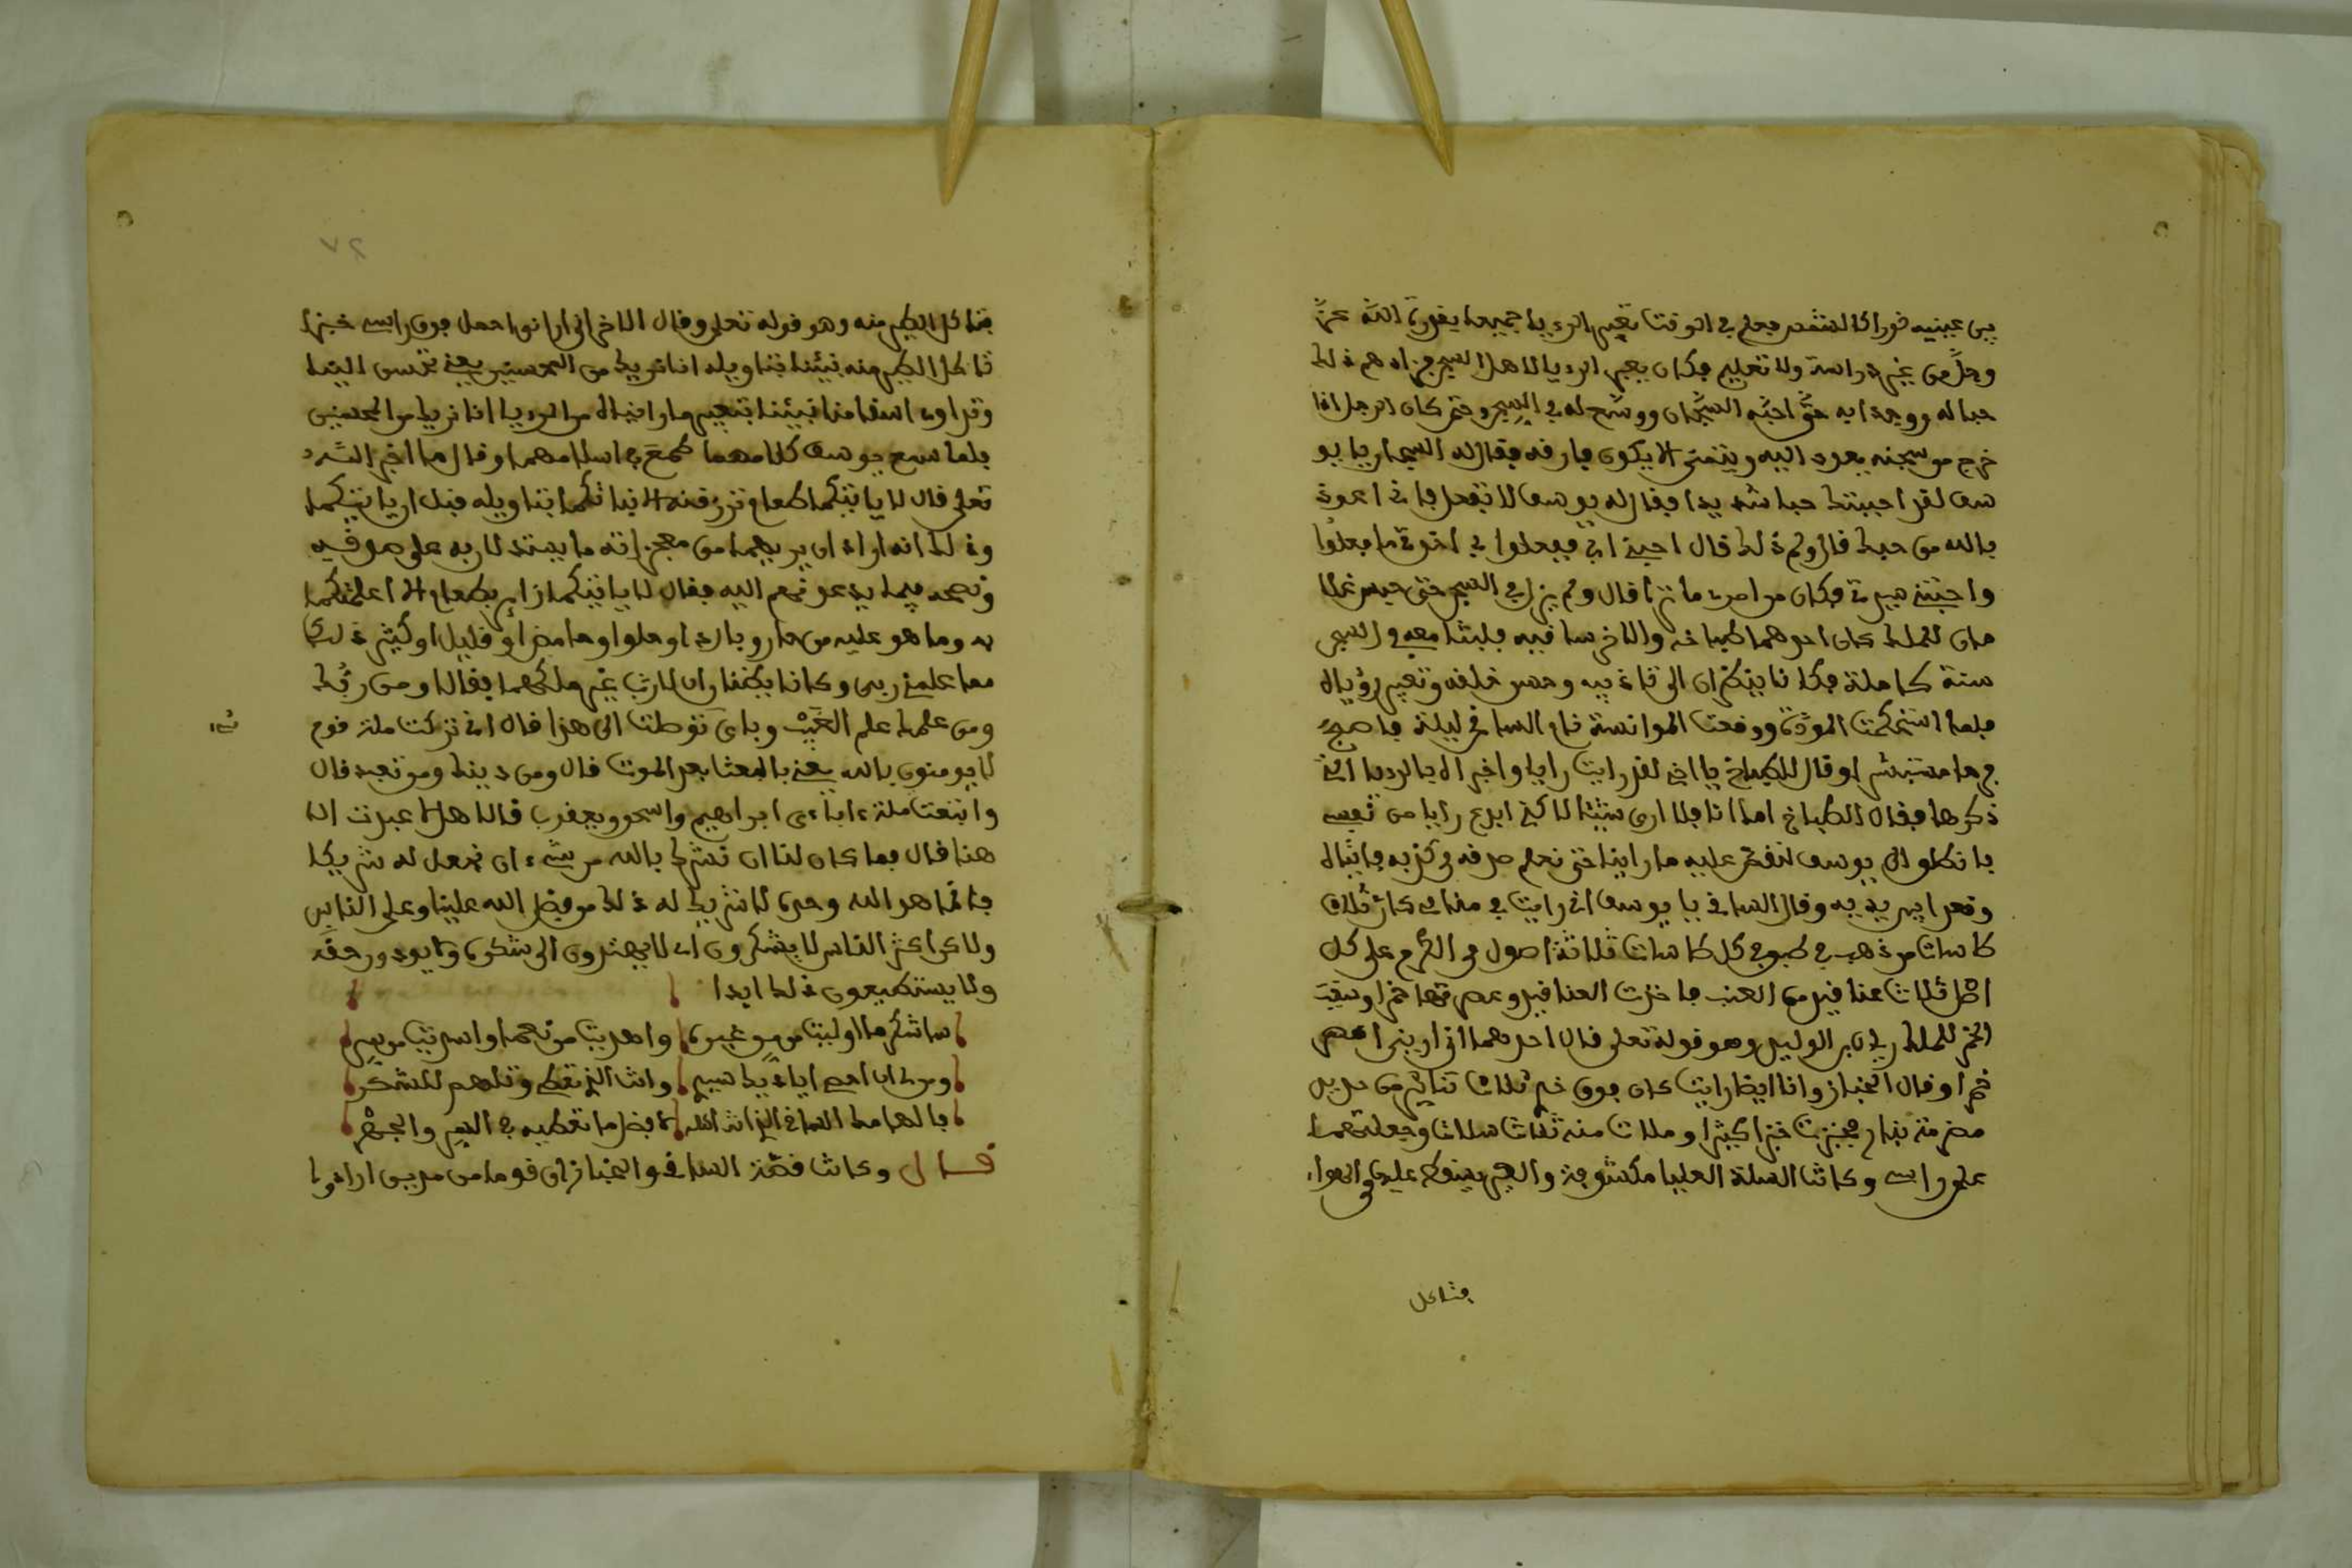 بين عينيه نورا كالشمس فعلم في الوقت تعبير الرءيا جميعا بقدرة الله عز
وجل من غير دراسة ولا تعليم فكان يعبر الرءيا لاهل السجن فزادهم ذلك
حبا له ووجدا به حتى احبه السجان ووسّع له في السجن وحتى كان الرجل اذا
خرج من سجنه يعود اليه ويتمنى الا يكون فارقه فقال له السجان يا يو
سف لقد احببتك حبا شديدا فقال له يوسف لا تفعل فاني اعوذ
بالله من حبك قال ولم ذلك قال احبني ابي ففعلوا بي اخوتي ما فعلوا
واحبتني سيدتي فكان من امري ما ترى قال ولم يزل في السجن حتى حبس غلا
مان للملك كان احدهما طباخه والاخر ساقيه فلبثا معه في السجن
سنة كاملة فكانا ينظران الى تاديبه وحسن خلقه وتعبير رؤياه
فلما استحكمت المودة ووقعت الموانسة نام الساقي ليلة فاصبح
فرحا مستبشرا وقال للطباخ يا اخي لقد رايت رايا واخبره بالرءيا التي
ذكرها فقال الطباخ اما انا فلا ارى شيئا لاكني ابدع رايا من نفسي
فانطلق الى يوسف لنقص عليه ما راينا حتى نعلم صدقه وكذبه فاتياه
وقعدا بين يديه وقال الساقي يا يوسف اني رايت في منامي كان ثلاث
كاسات من ذهب في طبق وفي كل كاسات ثلاثة اصول من الكرم على كل
اصل ثلاث عناقيد من العنب فاخذت العناقيد وعصرتها خمرا وسقيت
الخمر للملك ريان بن الوليد وهو قوله تعلى قال احدهما اني اريني اعصر
خمرا وقال الخباز وانا ايضا رايت كان فوق خبز ثلاث تنانير من حديد
مضرمة بنار فخبزت خبزا كثيرا وملات منه ثلاث سلات وجعلتهما
على راسي وكانت السلة العليا مكشوفة والطير يسقط عليها في الهواء
فتاكل
٧٢
فتاكل الطير منه وهو قوله تعلى وقال الاخر اني اراني احمل فوق راسي خبزا
تاكل الطير منه نبئنا بتاويله انا نريك من المحسنين يعني تحسن الينا
وتداوي اسقامنا نبئنا بتعبير ما راينا من الرءيا انا نريك من المحسنين
فلما سمع يوسف كلامهما طمع في اسلامهما وقال ما اخبر الله
تعلى قال لا ياتيكما طعام ترزقانه الا نباتكما بتاويله قبل ان ياتيكما
وذلك انه اراد ان يريهما من معجزاته ما يستدلا به على صدقه
ونصحه فيما يدعوهم اليه فقال لا ياتيكما زاير بطعام الا اعلمتكما
به وما هو عليه من حار وبارد او حلو او حامض او قليل او كثير ذلكما
مما علمني ربي وكانا يظنان ان لا رب غير ملكهما فقالا ومن ربك
ومن علمك علم الغيب وباي توصلت الى هذا قال اني تركت ملة قوم
لا يومنون بالله يعني بالبعث بعد الموت قال ومن دينك ومن تعبد قال
واتبعت ملة ءاباءي ابراهيم واسحق ويعقوب قالا هلا عبدت الا
هنا قال فما كان لنا ان نشرك بالله من شيء ان نجعل له شريكا
فانما هو الله وحده لا شريك له ذلك من فضل الله علينا وعلى الناس
ولاكن اكثر الناس لا يشكرون اي لا يهتدون الى شكره ولا يودون حقه
ولا يستطيعون ذلك ابدا
ساشكر ما اوليت من غيره واهديت من نعما واسديت من بر
ومن اين احصي اياديك سيدي وانت الذي تعطي وتلهم للشكر
فالهامك الساقي الذي انت اهله كافضل ما تعطيه في السر والجهر
قال وكانت قصة الساقي والخباز ان قوما من مدين ارادوا